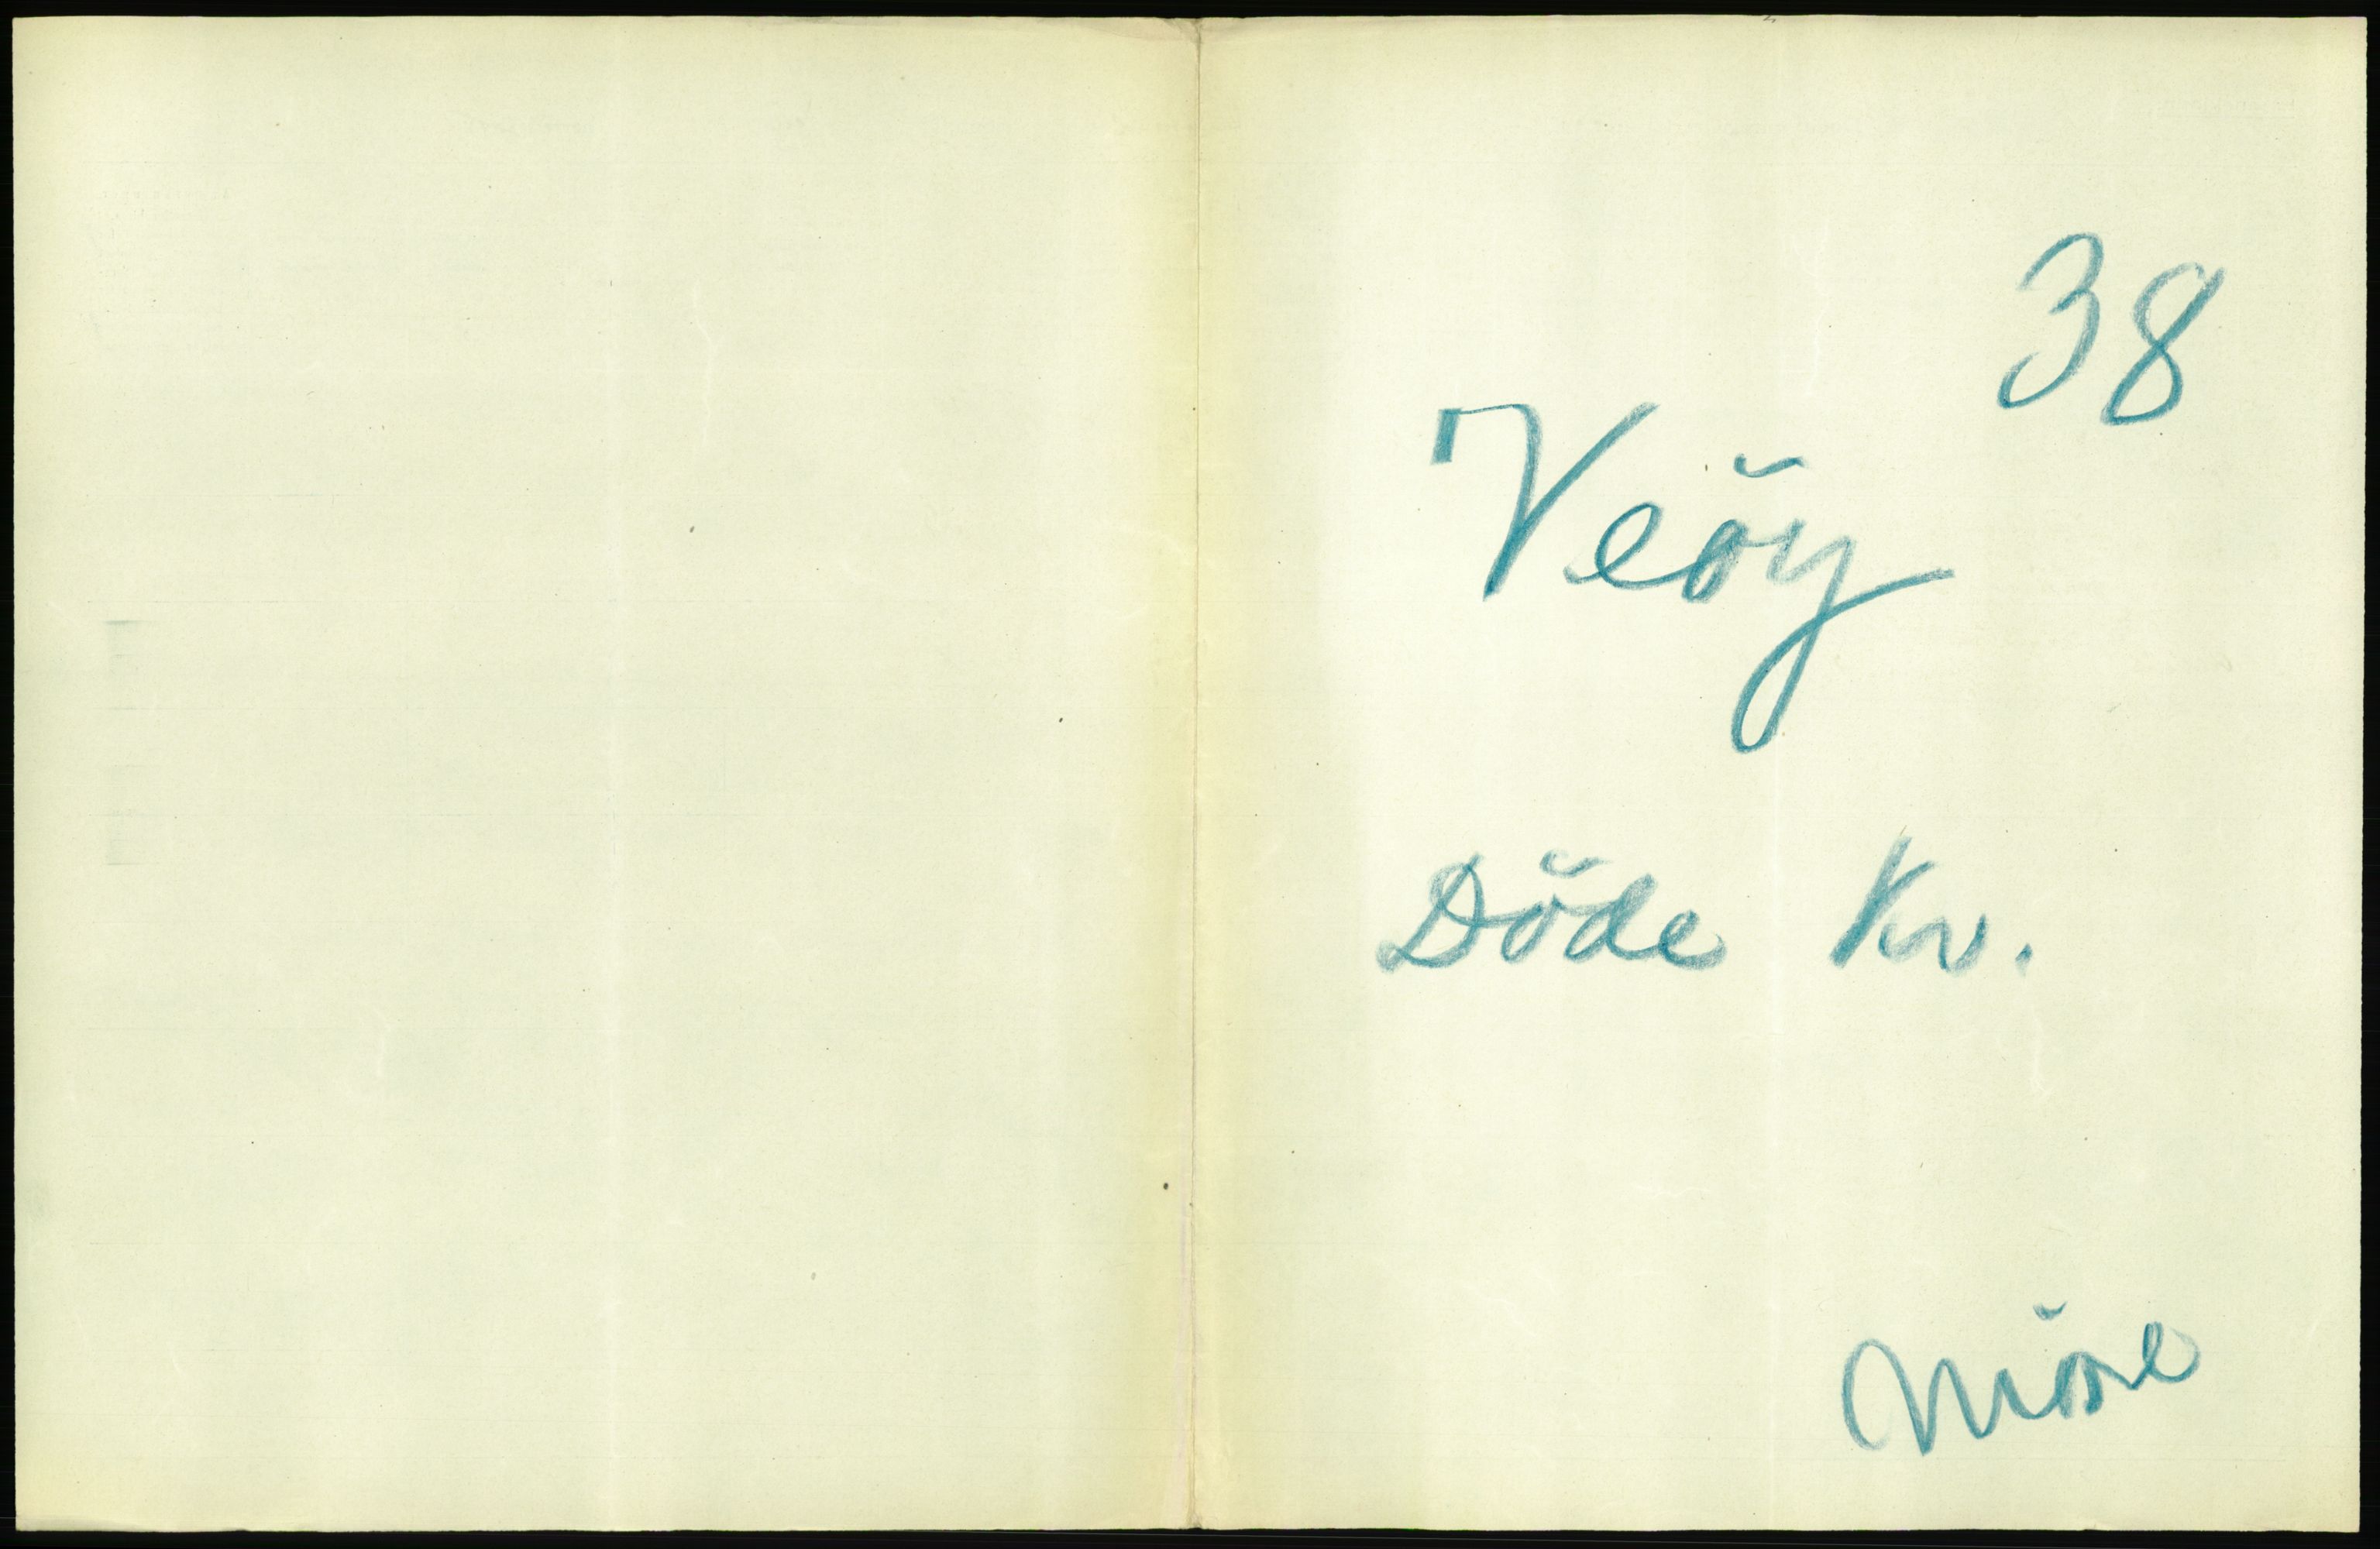 38
Veöy
Döde Kv.
Möre